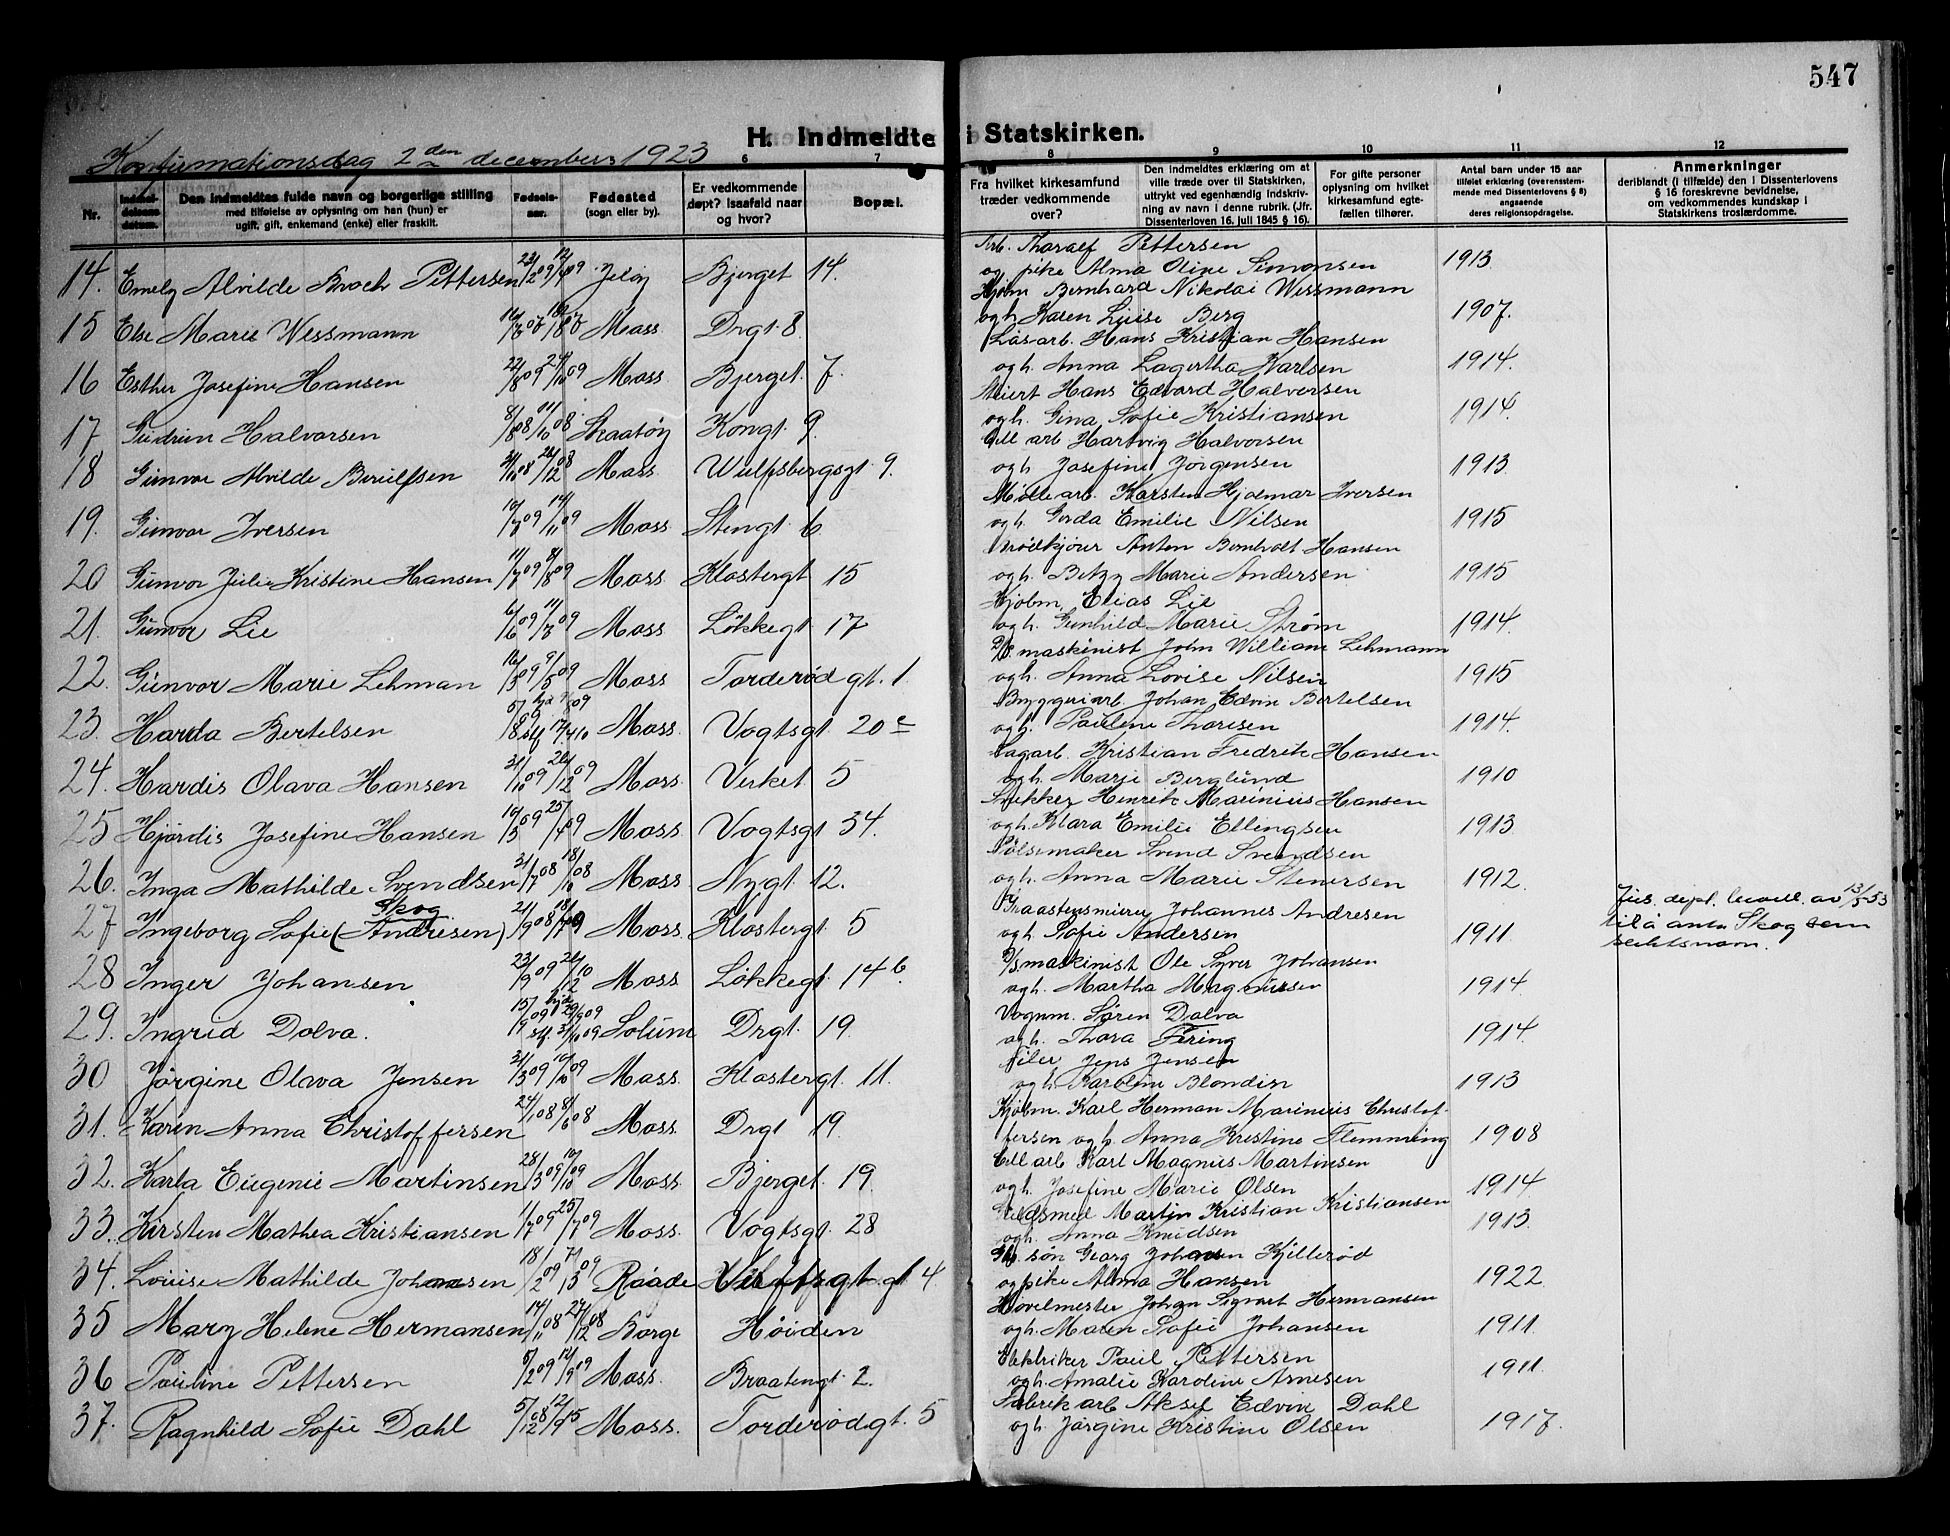 547
H. Indmeldte i Statskirken.
Konfirmationsdag 2den decembers 1923
6 7 8 9 10 11 12
Nr.
Indmeldelsens datum.
Den indmeldtes fulde navn og borgerlige stilling
med tilføielse av oplysning om han (hun) er
ugift, gift, enkemand (enke) eller fraskilt.
Fødselsaar.
Fødested
(sogn eller by).
Er vedkommende
døpt? Isaafald naar
og hvor?
Bopæl.
Fra hvilket kirkesamfund
træder vedkommende
over?
Den indmeldtes erklæring om at
ville træde over til Statskirken,
uttrykt ved egenhændig indskriv-
ning av navn i denne rubrik. (Jfr.
Dissenterloven 16. juli 1845 § 16).
For gifte personer
oplysning om hvilket
kirkesamfund egte-
fællen tilhører.
Antal barn under 15 aar
tilføiet erklæring (overensstem-
mende med Dissenterlovens § 8)
angaaende
deres religionsopdragelse.
Anmerkninger
deriblandt (i tilfælde) den i Dissenterlovens
§ 16 foreskrevne bevidnelse,
om vedkommendes kundskap i
Statskirkens troslærdomme.
Arb. Tharalf Pettersen
14. Emely Alvilde Broch Pettersen Jeløy Bjerget 14. og pike Alma Oline Simonsen 1913
Kjøbm Bernhard Nikolai Wessmann
15 Else Marie Wessmann Moss Drgt. 8. og h. Karen Lovise Berg 1907.
Løsarb. Hans Kristian Hansen
16 Esther Josefine Hansen 22/8 09 24/10 09 Moss Bjerget 7. og h. Anna Lagertha Karlsen 1914.
Meiert Hans Edvard Halvorsen
17 Gudrun Halvorsen 8/8 08 11/10 08 Skaatøy Kongt. 9. og h. Gina Sofie Kristiansen 1914.
Cell arb Hartvig Halvorsen
18 Gunvor Alvilde Berulfsen Moss Wulfsbergsgt. 9. og h. Josefine Jørgensen 1913
Mølle arb. Karsten Hjalmar Iversen
19. Gunvor Iversen Moss Stengt. 6 og h. Gerda Emilie Nilsen 1915
Anton Bernholt Hansen
20 Gunvor Julie Kristine Hansen 11/7 09 8/8 09 Moss Klostergt 15 og h. Betzy Marie Andersen 1915
Kjøbm Elias Lie
21. Gunvor Lie Moss Løkkegt. 17 og h. Gunhild Marie Strøm 1914.
D/S. maskinist John William Lehmann
22. Gunvor Marie Lehman 16/3 09 9/5 09 Moss Torderød gt. 1. og h. Anna Lovise Nilsen 1915
Bryggeriarb Johan Edvin Bertelsen
23. Harda Bertelsen Moss. Vogtsgt 20c og h. Pauline Thoresen 1914.
Sagarb. Kristian Fredrik Hansen
24. Hardis Olava Hansen 31/10 09 26/12 09 Moss Verket 5 og h. Marie Berglund 1910
Henrik Marinius Hansen
25 Hjørdis Josefine Hansen 10/3 09 25/4 09 Moss. Vogtsgt 34. og h. Klara Emilie Ellingsen 1913
Pølsemaker Svend Svendsen
26. Inga Mathilde Svendsen 31/7 08 18/10 08 Moss Nygt. 12. og h. Anna Marie Stenersen 1912.
Skog
Graastensmurer Johannes Andresen
27 Ingeborg Sofie (Andresen) Moss. Klostergt. 5 og h. Sofie Andersen 1911. Jus. dept. bevill. av 13/5-53
til å anta Skog som
slektsnavn.
D/S maskinist Ole Syver Johansen
28 Inger Johansen Moss Løkkegt 14b. og h. Martha Magnussen 1914
Vognm. Søren Dolva
29. Ingrid Dolva. Solum Drgt. 19. og h. Thora Fering 1914.
Filer Jens Jensen
30 Jørgine Olava Jensen 31/3 09 10/10 09 Moss. Klostergt. 11. og h. Karoline Blondin 1913
Kjøbm. Karl Herman Marinius Christof-
31. Karen Anna Christoffersen 24/1 08 8/6 08 Moss. Drgt 19. fersen og h. Anna Kristine Flemming 1908
Cell arb Karl Magnus Martinsen
32. Karla Eugenie Martinsen 28/3 09 10/10 09 Moss. Bjerget. 19. og h. Josefine Marie Olsen 1914.
Guldsmed Martin Kristian Kristiansen
33. Kirsten Mathea Kristiansen 1/7 09 25/7 09 Moss. Vogtsgt. 28 og h. Anna Knudsen 1913.
Gb. søn Georg Johansen Kjellerød
34. Lovise Mathilde Johansen 18/2 09 7/3 09 Raade 4 og pike Alma Hansen 1922
Høvelmester Johan Sigvart Hermansen
35 Mary Helene Hermansen 14/11 08 27/12 08 Borge Høiden og h. Maren Sofie Johansen 1911.
Elektriker Paul Pettersen
36 Pauline Pettersen Moss. Braatengt. 2. og h. Amalie Karoline Arnesen 1911.
Fabrik arb Aksel Edvin Dahl
37. Ragnhild Sofie Dahl Moss. Torderødgt. 5 og h. Jørgine Kristine Olsen 1917.